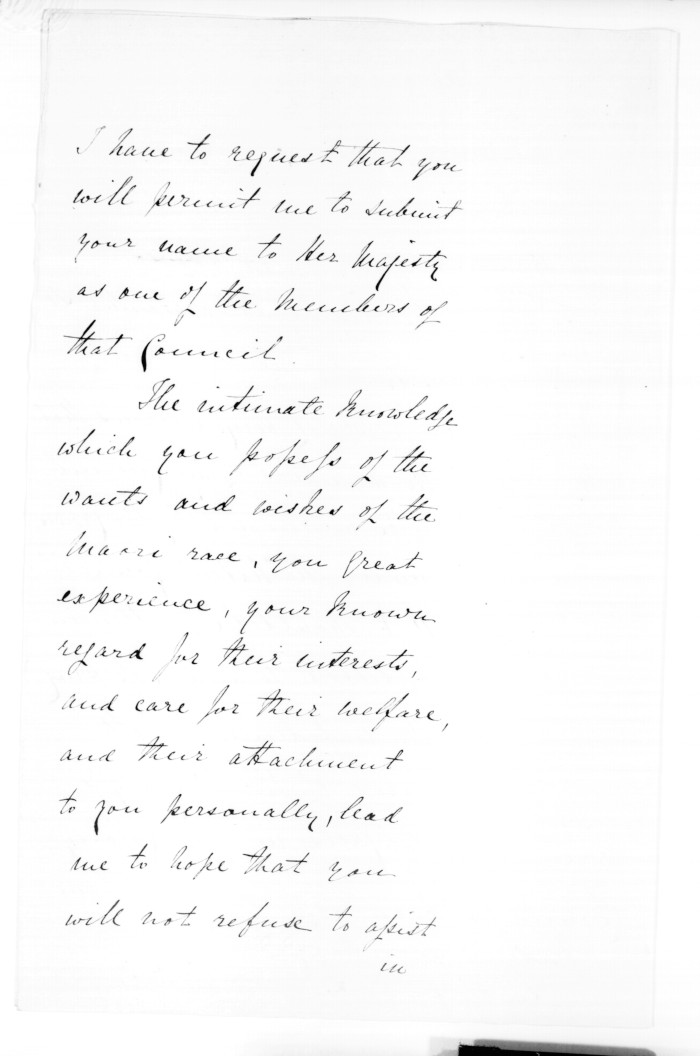 I have to request that you
will permit me to submit
your name to Her Majesty
as one of the Members of
that Council.
The intimate knowledge
which you possess of the
wants and wishes of the
Maori race, you great
experience, your known
regard for their interests,
and care for their welfare,
and their attachment
to you personally, lead
me to hope that you
will not refuse to assist
in